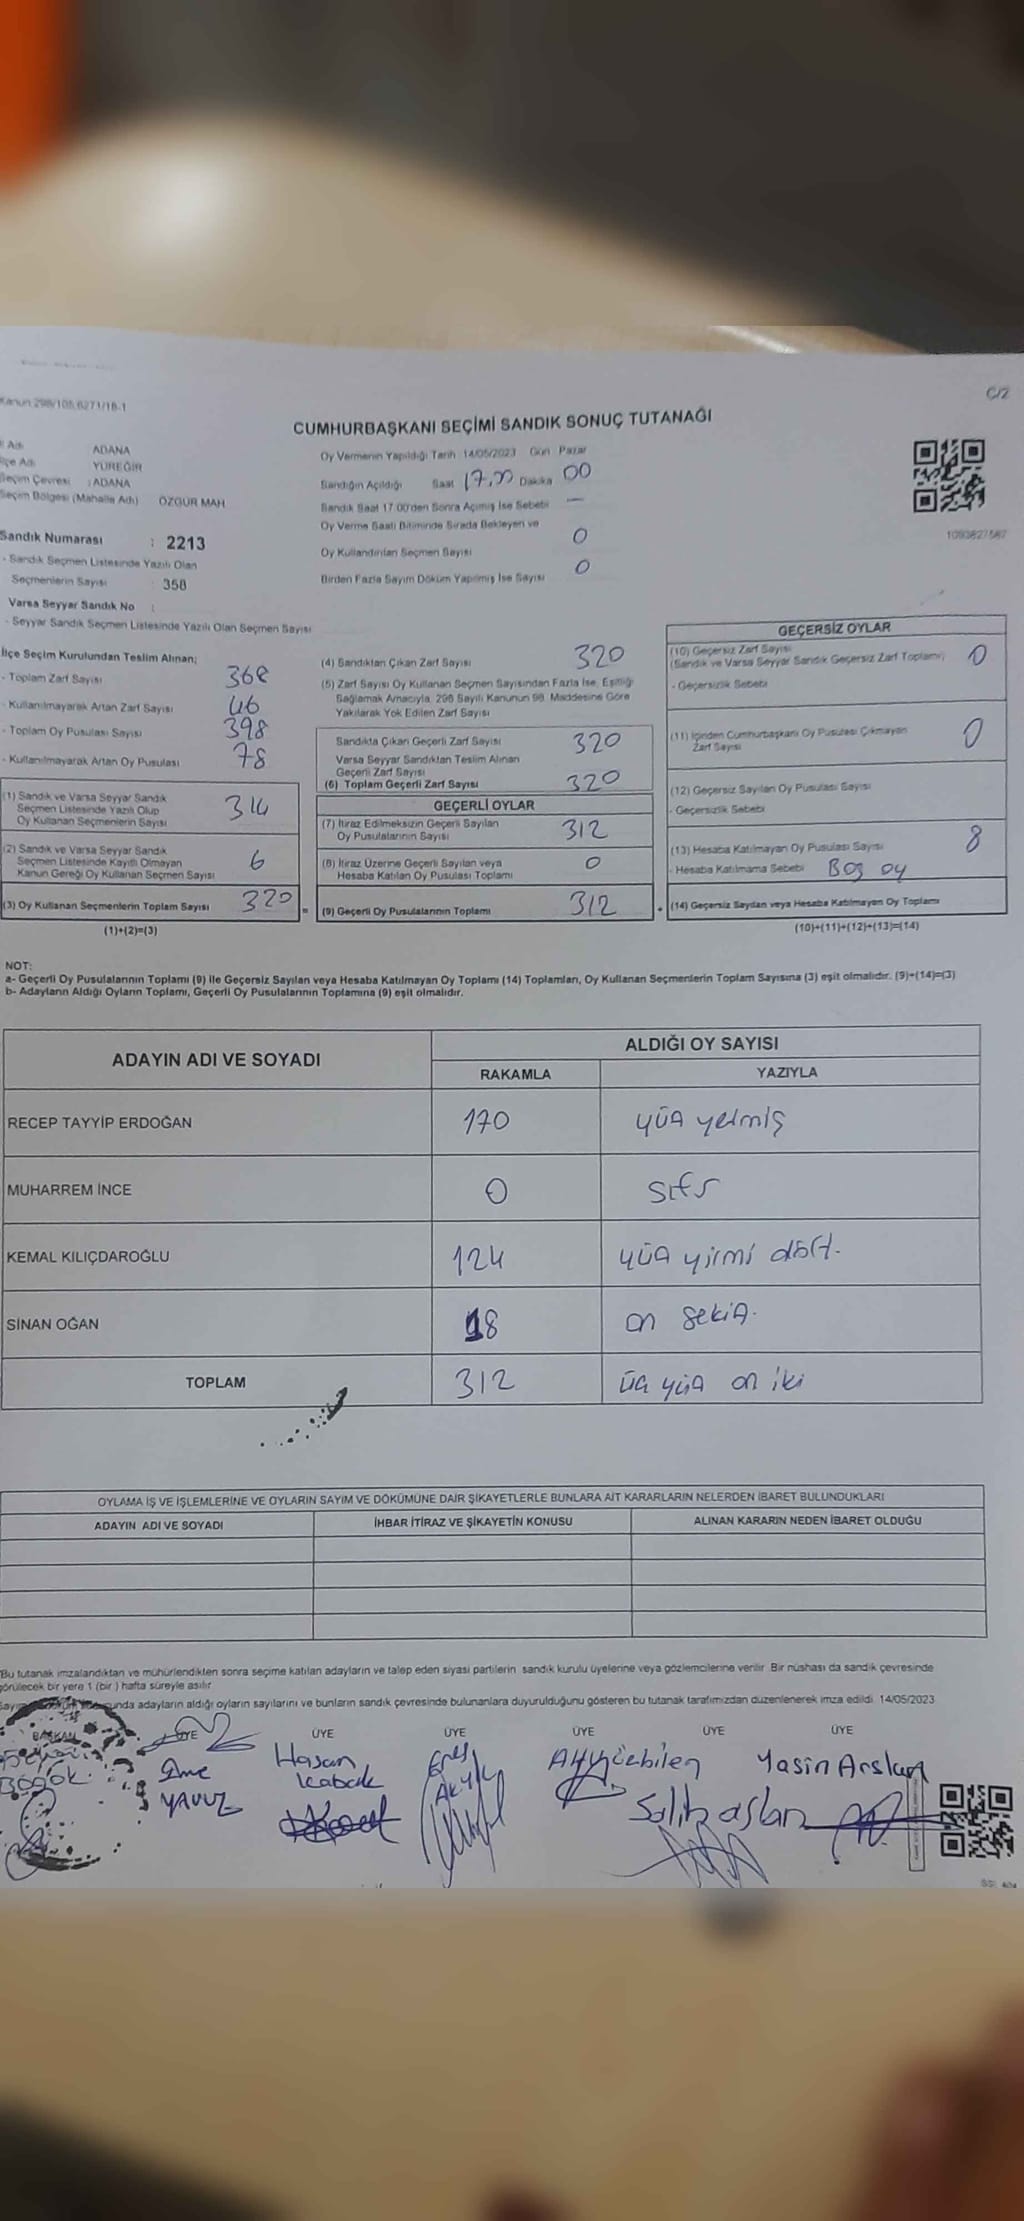 Kanun:298/105,6271/18-1
C/2
CUMHURBAŞKANI SEÇİMİ SANDIK SONUÇ TUTANAĞI
İl Adı ADANA
İlçe Adı YÜREĞİR
Seçim Çevresi : ADANA
Seçim Bölgesi (Mahalle Adı) ÖZGÜR MAH
Sandık Numarası : 2213
- Sandık Seçmen Listesinde Yazılı Olan
Seçmenlerin Sayısı : 358
Varsa Seyyar Sandık No :
- Seyyar Sandık Seçmen Listesinde Yazılı Olan Seçmen Sayısı
Oy Vermenin Yapıldığı Tarih 14/05/2023 Gün Pazar
Sandığın Açıldığı Saat 17,00 Dakika 00
Sandık Saat 17:00'den Sonra Açılmış İse Sebebi —
Oy Verme Saati Bitiminde Sırada Bekleyen ve
Oy Kullandırılan Seçmen Sayısı 0
Birden Fazla Sayım Döküm Yapılmış İse Sayısı 0
1093827587
İlçe Seçim Kurulundan Teslim Alınan;
- Toplam Zarf Sayısı 368
- Kullanılmayarak Artan Zarf Sayısı 46
- Toplam Oy Pusulası Sayısı 398
- Kullanılmayarak Artan Oy Pusulası 78
(1) Sandık ve Varsa Seyyar Sandık
Seçmen Listesinde Yazılı Olup
Oy Kullanan Seçmenlerin Sayısı 314
(2) Sandık ve Varsa Seyyar Sandık
Seçmen Listesinde Kayıtlı Olmayan
Kanun Gereği Oy Kullanan Seçmen Sayısı 6
(3) Oy Kullanan Seçmenlerin Toplam Sayısı 320 =
(1)+(2)=(3)
(4) Sandıktan Çıkan Zarf Sayısı 320
(5) Zarf Sayısı Oy Kullanan Seçmen Sayısından Fazla İse, Eşitliği
Sağlamak Amacıyla, 298 Sayılı Kanunun 98. Maddesine Göre
Yakılarak Yok Edilen Zarf Sayısı
Sandıkta Çıkan Geçerli Zarf Sayısı 320
Varsa Seyyar Sandıktan Teslim Alınan
Geçerli Zarf Sayısı
(6) Toplam Geçerli Zarf Sayısı 320
GEÇERLİ OYLAR
(7) İtiraz Edilmeksizin Geçerli Sayılan
Oy Pusulalarının Sayısı 312
(8) İtiraz Üzerine Geçerli Sayılan veya
Hesaba Katılan Oy Pusulası Toplamı 0
(9) Geçerli Oy Pusulalarının Toplamı 312 +
GEÇERSİZ OYLAR
(10) Geçersiz Zarf Sayısı
(Sandık ve Varsa Seyyar Sandık Geçersiz Zarf Toplamı) 0
- Geçersizlik Sebebi
(11) İçinden Cumhurbaşkanı Oy Pusulası Çıkmayan
Zarf Sayısı 0
(12) Geçersiz Sayılan Oy Pusulası Sayısı
- Geçersizlik Sebebi
(13) Hesaba Katılmayan Oy Pusulası Sayısı 8
- Hesaba Katılmama Sebebi Boş oy
(14) Geçersiz Sayılan veya Hesaba Katılmayan Oy Toplamı
(10)+(11)+(12)+(13)=(14)
NOT:
a- Geçerli Oy Pusulalarının Toplamı (9) ile Geçersiz Sayılan veya Hesaba Katılmayan Oy Toplamı (14) Toplamları, Oy Kullanan Seçmenlerin Toplam Sayısına (3) eşit olmalıdır. (9)+(14)=(3)
b- Adayların Aldığı Oyların Toplamı, Geçerli Oy Pusulalarının Toplamına (9) eşit olmalıdır.
ADAYIN ADI VE SOYADI
ALDIĞI OY SAYISI
RAKAMLA YAZIYLA
RECEP TAYYİP ERDOĞAN 170 yüz yetmiş
MUHARREM İNCE 0 sıfır
KEMAL KILIÇDAROĞLU 124 yüz yirmi dört.
SİNAN OĞAN 18 on sekiz.
TOPLAM 312 üç yüz on iki
OYLAMA İŞ VE İŞLEMLERİNE VE OYLARIN SAYIM VE DÖKÜMÜNE DAİR ŞİKAYETLERLE BUNLARA AİT KARARLARIN NELERDEN İBARET BULUNDUKLARI
ADAYIN ADI VE SOYADI İHBAR İTİRAZ VE ŞİKAYETİN KONUSU ALINAN KARARIN NEDEN İBARET OLDUĞU
Bu tutanak imzalandıktan ve mühürlendikten sonra seçime katılan adayların ve talep eden siyasi partilerin sandık kurulu üyelerine veya gözlemcilerine verilir. Bir nüshası da sandık çevresinde
görülecek bir yere 1 (bir) hafta süreyle asılır
adayların aldığı oyların sayılarını ve bunların sandık çevresinde bulunanlara duyurulduğunu gösteren bu tutanak tarafımızdan düzenlenerek imza edildi. 14/05/2023
BAŞKAN ÜYE ÜYE ÜYE ÜYE ÜYE ÜYE
YAVUZ
Hasan
Kabak
Enes
Yasin Arslan
Salih aslan